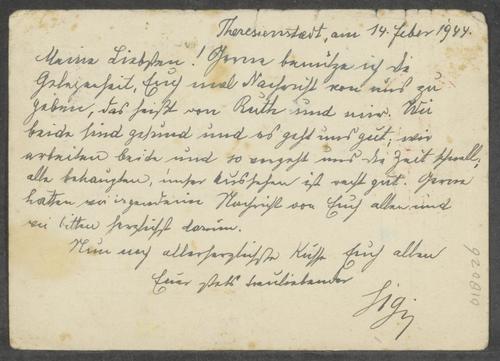 Theresienstadt, am 14. Feber 1944.
Meine Liebsten! Gerne benütze ich die
Gelegenheit, Euch mal Nachricht von uns zu
geben, das heißt von Ruth und mir. Wir
beide sind gesund und es geht uns gut; wir
arbeiten beide und so vergeht uns die Zeit schnell;
alle behaupten, unser Aussehen ist recht gut. Gerne
hätten wir irgendeine Nachricht von Euch allen und
wir bitten herzlichst darum.
Nun noch allerherzlichste Küsse Euch allen
Euer stets treuliebender
Sigi
920810